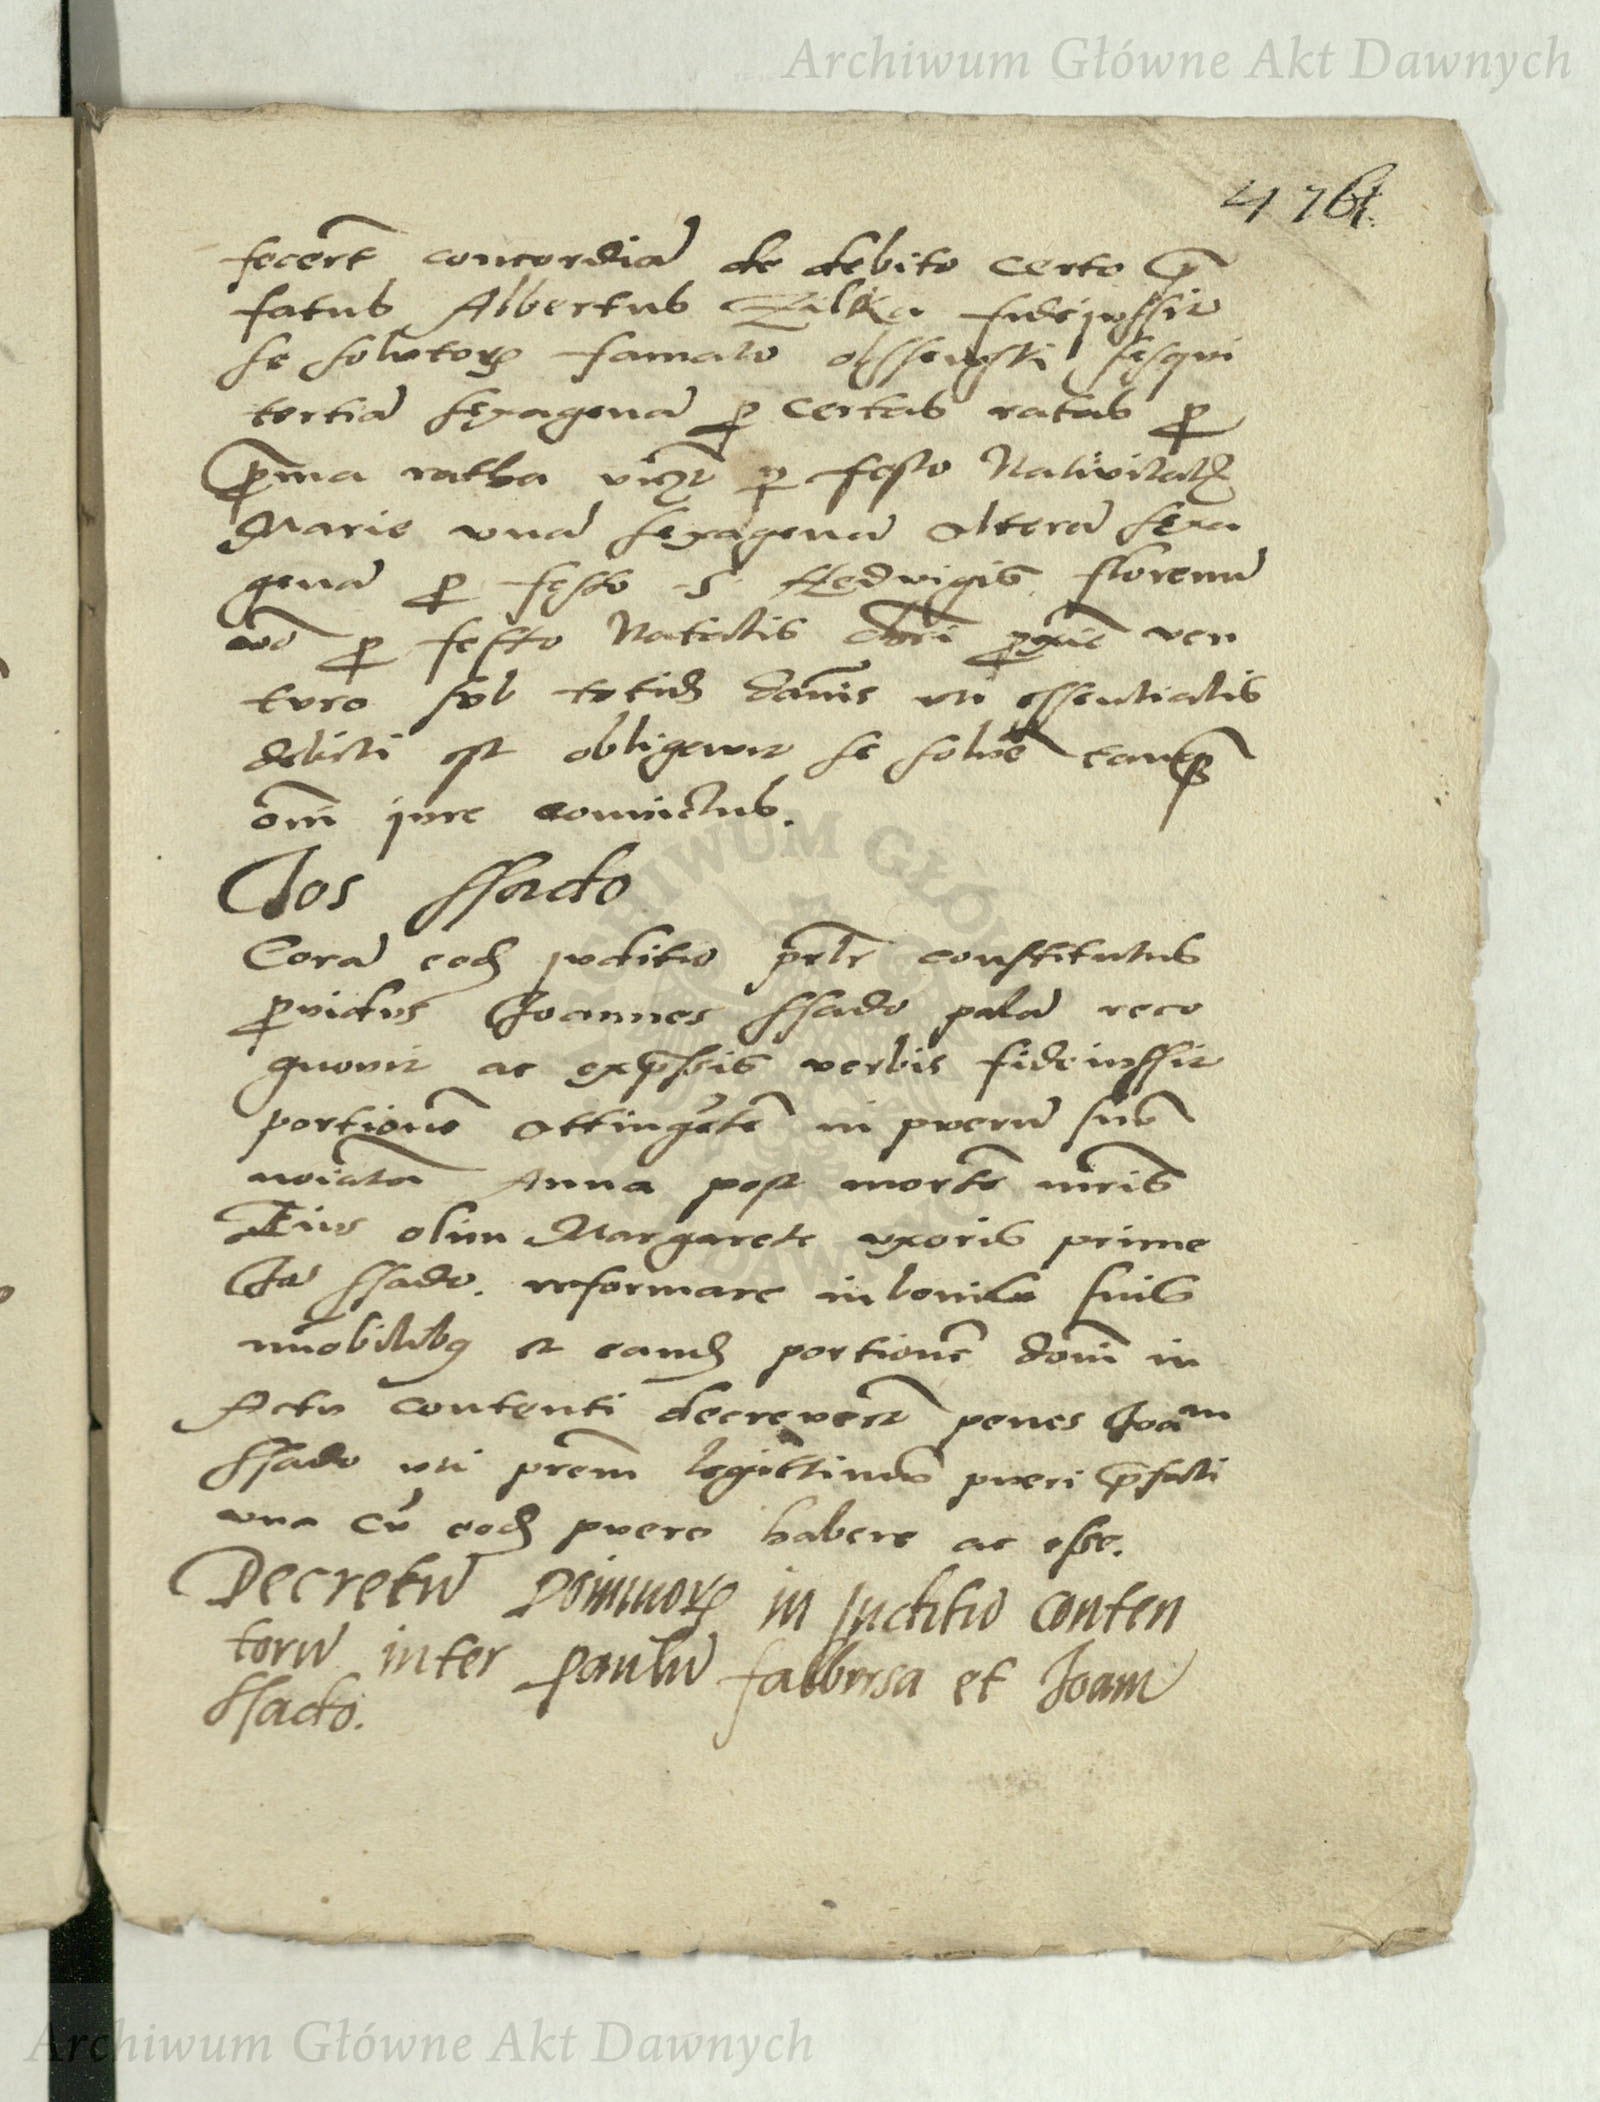 Archiwum Główne Akt Dawnych
476
fecert concordia de debito certo p̄
fatus Albertus Zilka fideiussit
se solutor famato olssewski sesqui
tertia sexagena p certas ratas p
prima ratha vicz p festo Nativitat
Marie una sexagena altera sexa
gena p festo S Hedvigis florenu
vo p festo Natalis dni pxie ven
turo sub totid damis uti essentialis
debiti est obligavit se solve tanq
omi jure convictus.
Jos ssado
Cora eod juditio prlr constitutus
pvidus Joannes ssado pala reco
gnovit ac expssis verbis fideiussit
portione attingete in pueru suu
noiata Anna post morte mris
Eius olim Margarete uxoris prime
Ja ssado. reformare in bonis suis
imobilibq et eamd portione domi in
Actu contenti decrevert penes Joam
ssado uti prem legittimu pueri pfati
una cu eod puero habere ac esse.
Decretu Dominor in juditio conten
toru inter paulu falbursa et Joam
ssado.
ARCHIWUM GŁÓWNE AKT DAWNYCH
Archiwum Główne Akt Dawnych